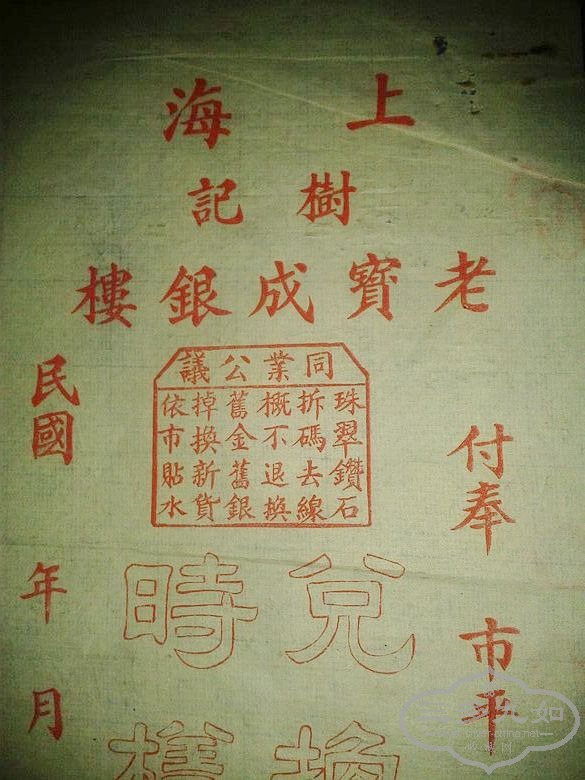 上海
樹記
老寶成銀樓
付奉 市平
同業公議
珠翠鑽石
拆碼去線
概不退換
舊金舊銀
掉換新貨
依市貼水
兌換
時樣
民國 年 月